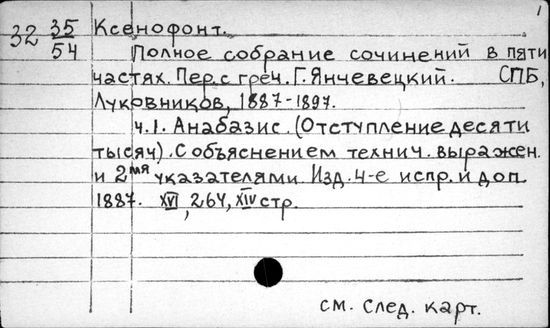 1
32 35/54 Ксенофонт.
Полное собрание сочинений в пяти
частях. Пер. с греч. Г. Янчевецкий. СПБ,
Луковников, 1887-1897.
ч.1. Анабазис. (Отступление десяти
тысяч). С объяснением технич. выражен.
и 2мя указателями. Изд. 4-е испр. и доп.
1887. XVI, 264, XIV стр.
см. след. карт.